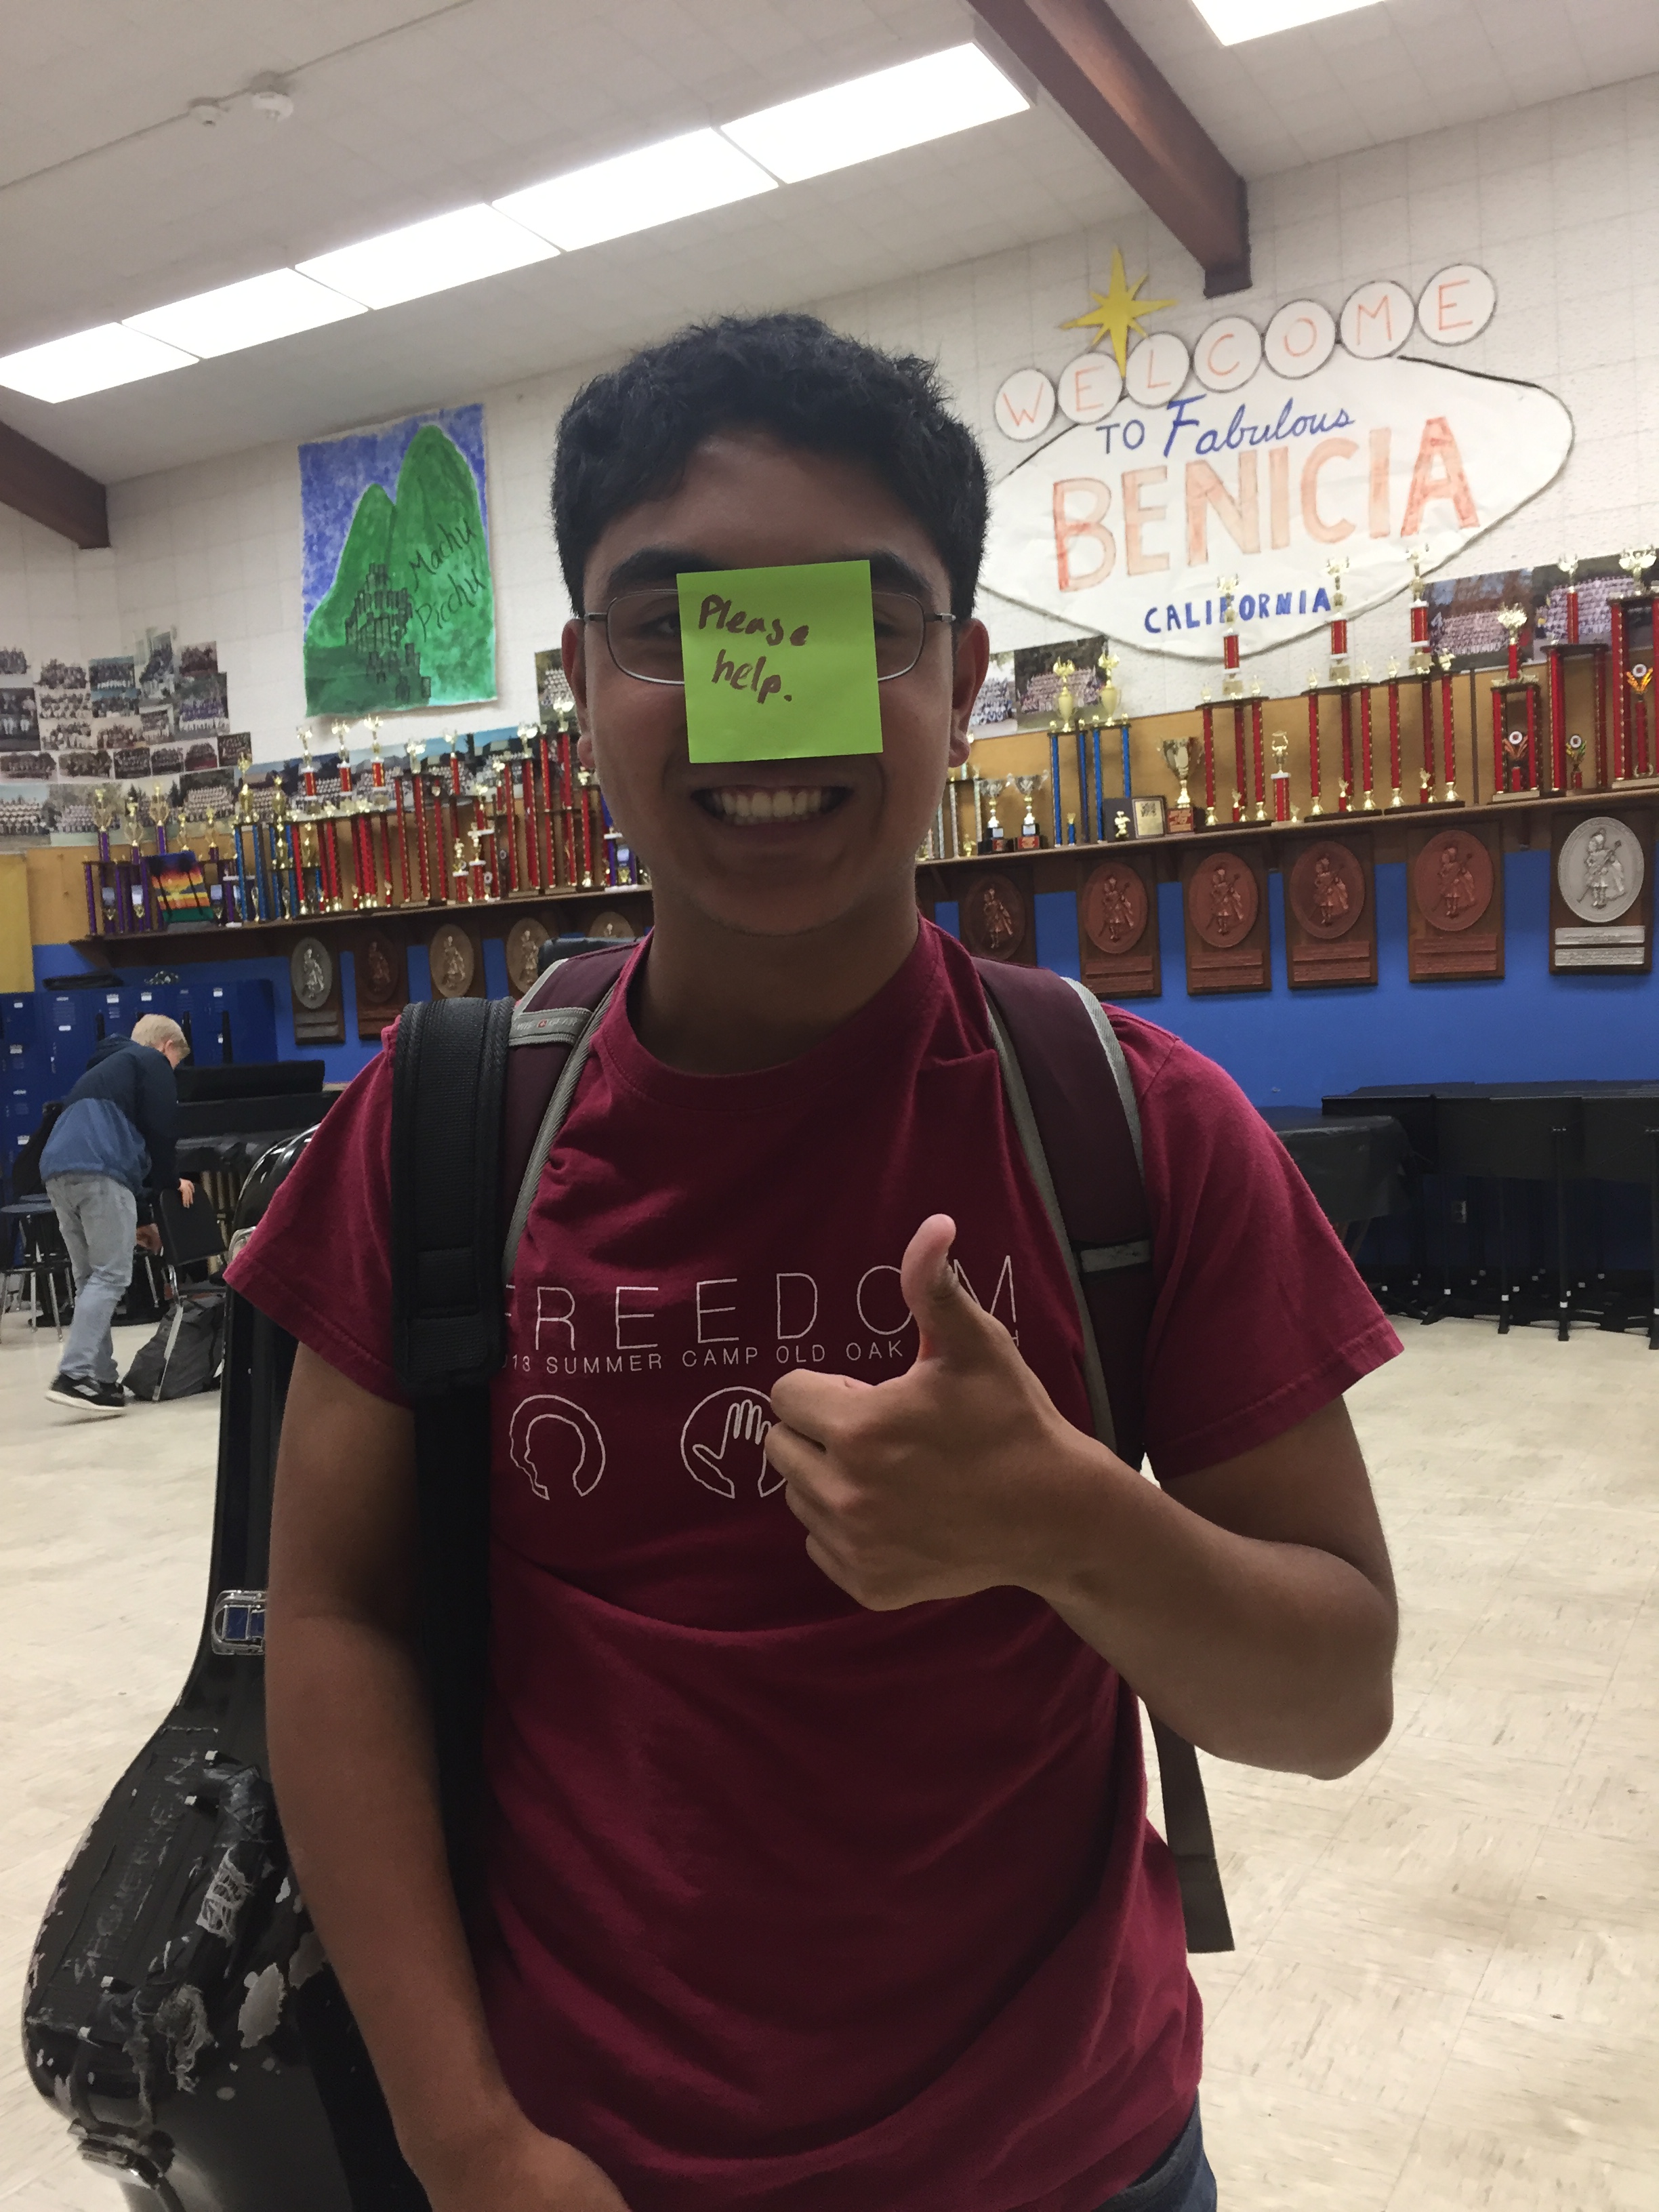 WELCOME
TO Fabulous
BENICIA
CALIFORNIA
Machu
Picchu
Please
help.
FREEDOM
013 SUMMER CAMP OLD OAK